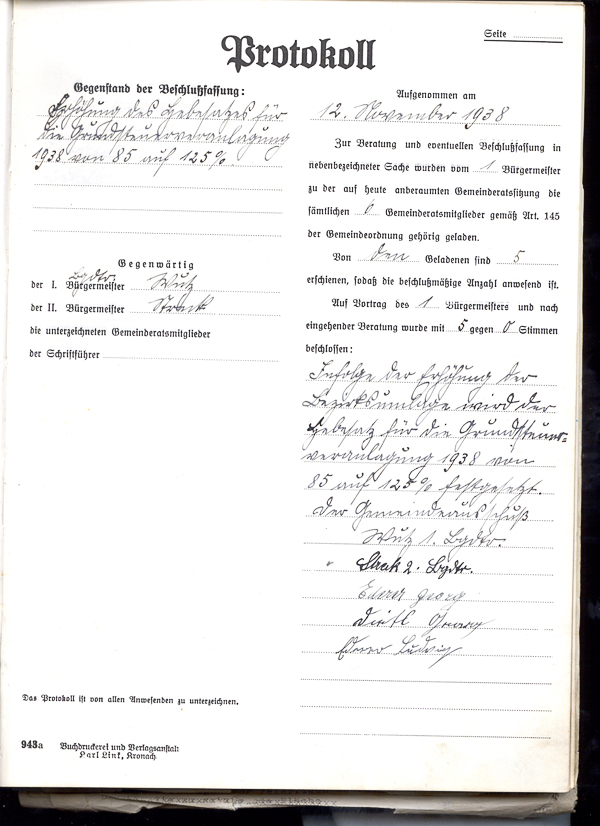 Seite
Protokoll
Gegenstand der Beschlußfassung:
Erhöhung des Hebesatzes für
die Grundsteuerveranlagung
1938 von 85 auf 125%.
Gegenwärtig
Bgdtr.
der I. Bürgermeister Wutz
der II. Bürgermeister Strack
die unterzeichneten Gemeinderatsmitglieder
der Schriftführer
Das Protokoll ist von allen Anwesenden zu unterzeichnen.
943a Buchdruckerei und Verlagsanstalt
Karl Link, Kronach
Aufgenommen am
12. November 1938
Zur Beratung und eventuellen Beschlußfassung in
nebenbezeichneter Sache wurden vom 1 Bürgermeister
zu der auf heute anberaumten Gemeinderatssitzung die
sämtlichen 6 Gemeinderatsmitglieder gemäß Art. 145
der Gemeindeordnung gehörig geladen.
Von den Geladenen sind 5
erschienen, sodaß die beschlußmäßige Anzahl anwesend ist.
Auf Vortrag des 1 Bürgermeisters und nach
eingehender Beratung wurde mit 5 gegen 0 Stimmen
beschlossen:
Infolge der Erhöhung der
Bezirksumlage wird der
Hebesatz für die Grundsteuer-
veranlagung 1938 von
85 auf 125% festgesetzt.
Der Gemeindeausschuß
Wutz 1. Bgdtr.
2. Bgdtr.
Georg
Georg
Ludwig